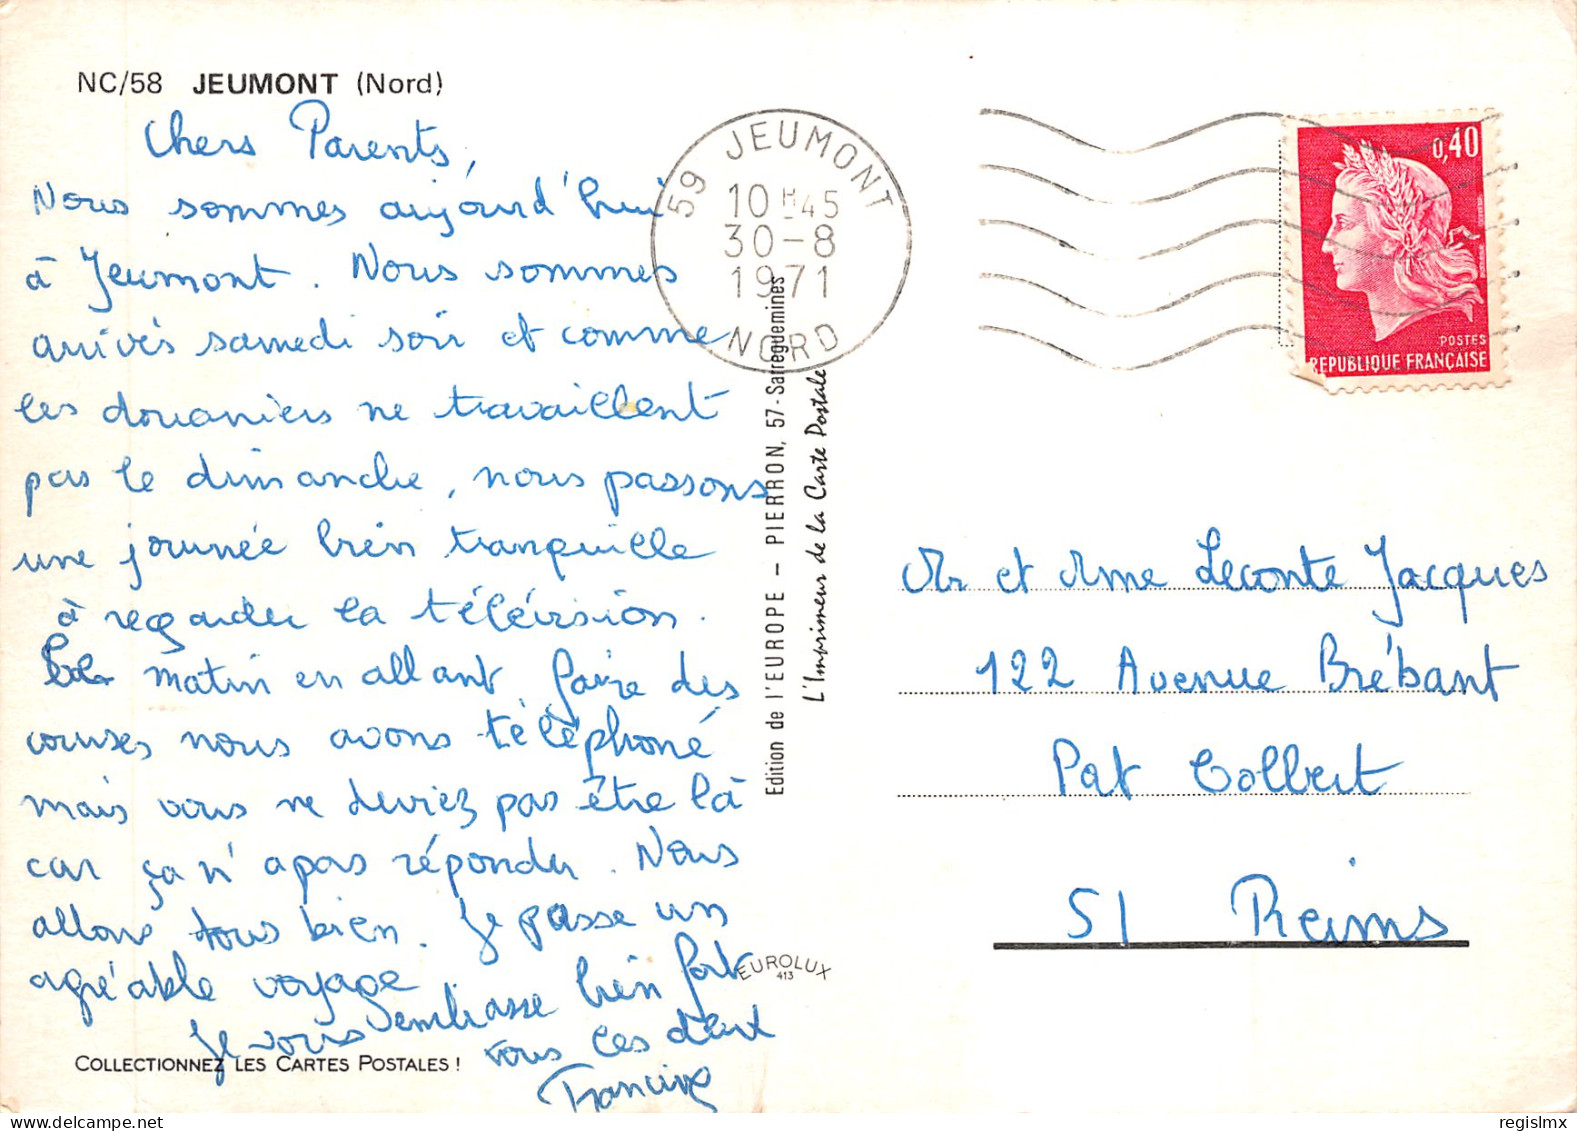 NC/58 JEUMONT (Nord)
Chers Parents,
Nous sommes aujourd'hui
à Jeumont. Nous sommes
arrivés samedi soir et comme
les douaniers ne travaillent
pas le dimanche, nous passons
une journée bien tranquille
à regarder la télévision.
matin en allant faire des
courses nous avons téléphoné
mais vous ne deviez pas être là
car ça n'a pas répondu. Nous
allons tous bien. Je passe un
agréable voyage
Je vous embrasse bien fort
vous les deux
Francine
COLLECTIONNEZ LES CARTES POSTALES !
59 JEUMONT
10 H 45
30-8
1971
NORD
Edition de l'EUROPE - PIERRON, 57 - Sarreguemines
L'Imprimeur de la Carte Postale
EUROLUX
413
0,40
POSTES
REPUBLIQUE FRANÇAISE
Mr et Mme Leconte Jacques
122 Avenue Brébant
Pat Colbert
51 Reims
regislmx